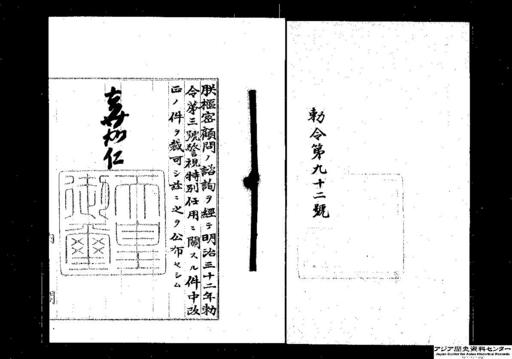 勅令第九十二號
朕樞密顧問ノ諮詢ヲ經テ明治三十二年勅
令第三號警視特別任用ニ關スル件中改
正ノ件ヲ裁可シ茲ニ之ヲ公布セシム
嘉仁
天皇
御璽
内閣
アジア歴史資料センター
Japan Center for Asian Historical Records